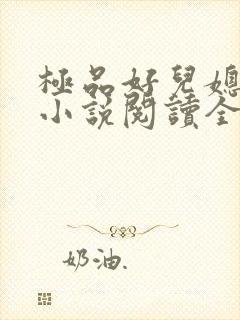 極品好兒媳
小說閱讀全
奶油.